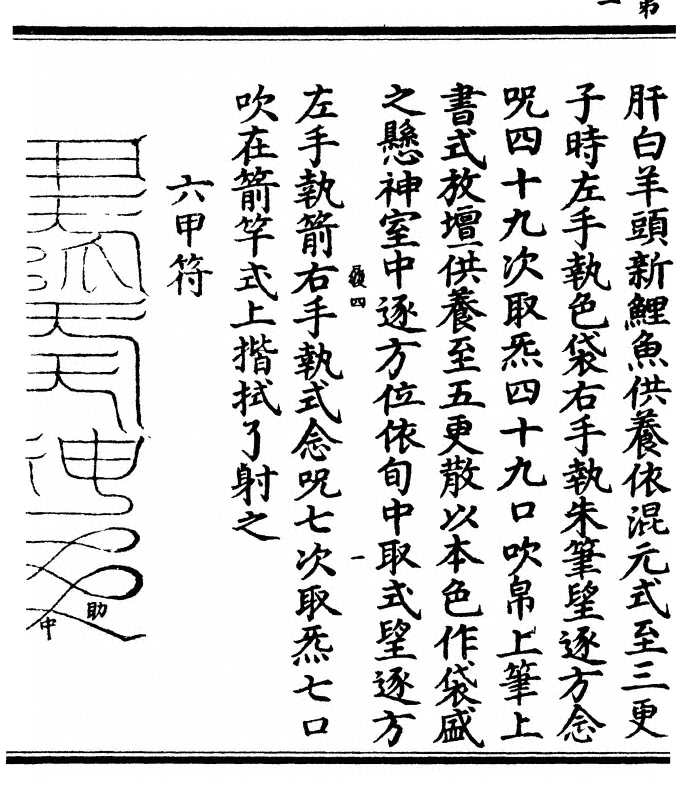 弟一
肝白羊頭新鯉魚供養依混元式至三更
子時左手執色袋右手執朱筆望逐方念
呪四十九次取炁四十九口吹帛上筆上
書式放壇供養至五更散以本色作袋盛
之懸神室中逐方位依旬中取式望逐方
左手執箭右手執式念呪七次取炁七口
吹在箭竿式上揩拭了射之
六甲符
助
中